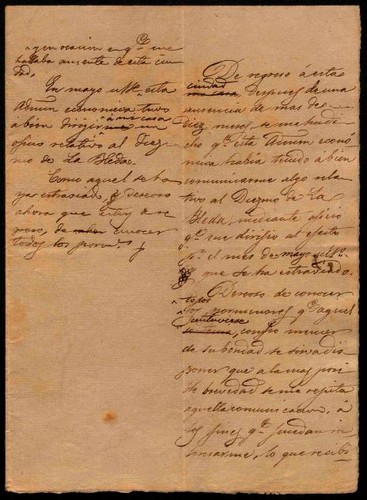 y en ocasion en qe me
hallaba ausente de esta ciu-
dad.
En mayo
esta
Admon economica tuvo
á bien dirijir
á mi casa
oficio relativo al Diez-
mo de La Bleda.
Como aquel se ha-
ya estraviado, y deseoso
ahora que estoy de re-
greso, de conocer
todos los porm.
De regreso á esta
ciudad despues de una
ausencia de mas de
diez meses se me ha di-
cho qe esta Admon econó-
mica habia tenido á bien
comunicarme algo rela-
tivo al Diezmo de La
Bleda, mediante oficio
qe me dirijió al efecto
pr el mes de mayo
y que se ha estraviado.
Deseoso de conocer
todos
los pormenores qe aquel
contuviese
confio merecer
de su bondad se sirva dis-
poner que a la mas posi-
ble brevedad se me repita
aquella comunicacion, á
los fines qe puedan in-
teresarme, lo que recibi